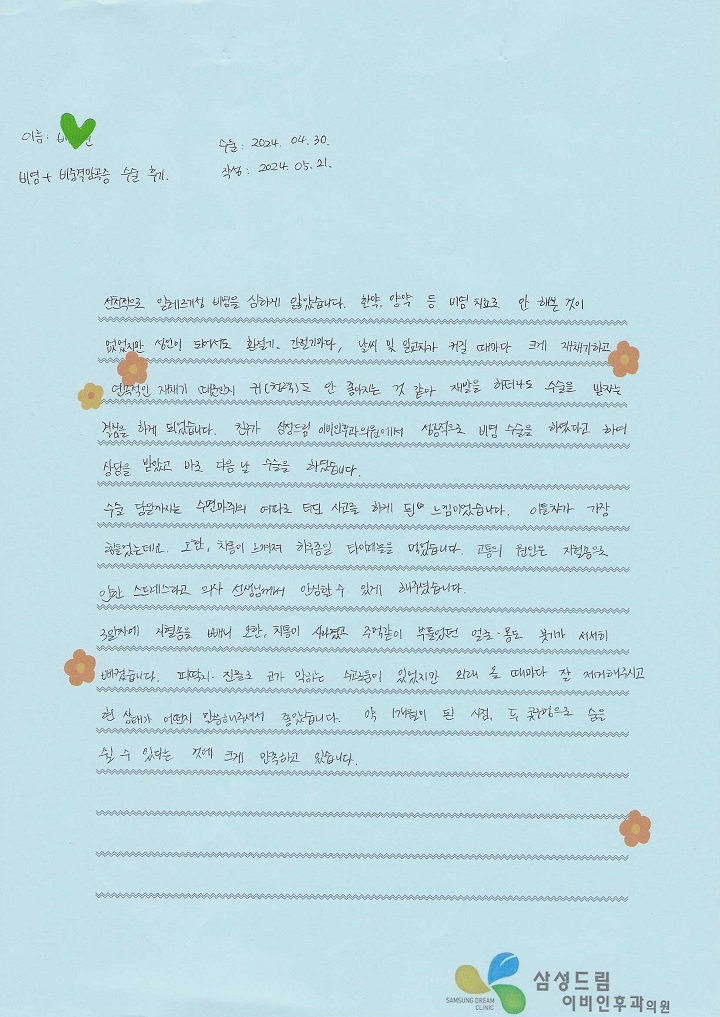 이름: 배
수술: 2024. 04. 30.
비염 + 비중격만곡증 수술 후기.
작성: 2024. 05. 21.
선천적으로 알레르기성 비염을 심하게 앓았습니다. 한약, 양약 등 비염 치료로 안 해본 것이
없었지만 성인이 되어서도 환절기, 간절기마다, 날씨 및 일교차가 커질 때마다 크게 재채기하고
연속적인 재채기 때문인지 귀 도 안 좋아지는 것 같아 재발을 하더라도 수술을 받자는
결심을 하게 되었습니다. 친구가 삼성드림 이비인후과의원에서 성공적으로 비염 수술을 하였다고 하여
상담을 받았고 바로 다음 날 수술을 하였습니다.
수술 당일까지는 수면마취의 여파로 더딘 사고를 하게 된 느낌이었습니다. 이틀차가 가장
힘들었는데요. 오한, 치통이 느껴져 하루종일 타이레놀을 먹었습니다. 고통의 원인은 지혈솜으로
인한 스트레스라고 의사 선생님께서 안심할 수 있게 해주셨습니다.
3일차에 지혈솜을 빼니 오한, 치통이 사라졌고 주먹같이 부풀었던 얼굴·몸도 붓기가 서서히
빠졌습니다. 피딱지·진물로 코가 막히는 수고로움이 있었지만 외래 올 때마다 잘 제거해주시고
현 상태가 어떤지 말씀해주셔서 좋았습니다. 약 1개월이 된 시점, 두 콧구멍으로 숨을
쉴 수 있다는 것에 크게 만족하고 있습니다.
SAMSUNG DREAM CLINIC
삼성드림
이비인후과의원